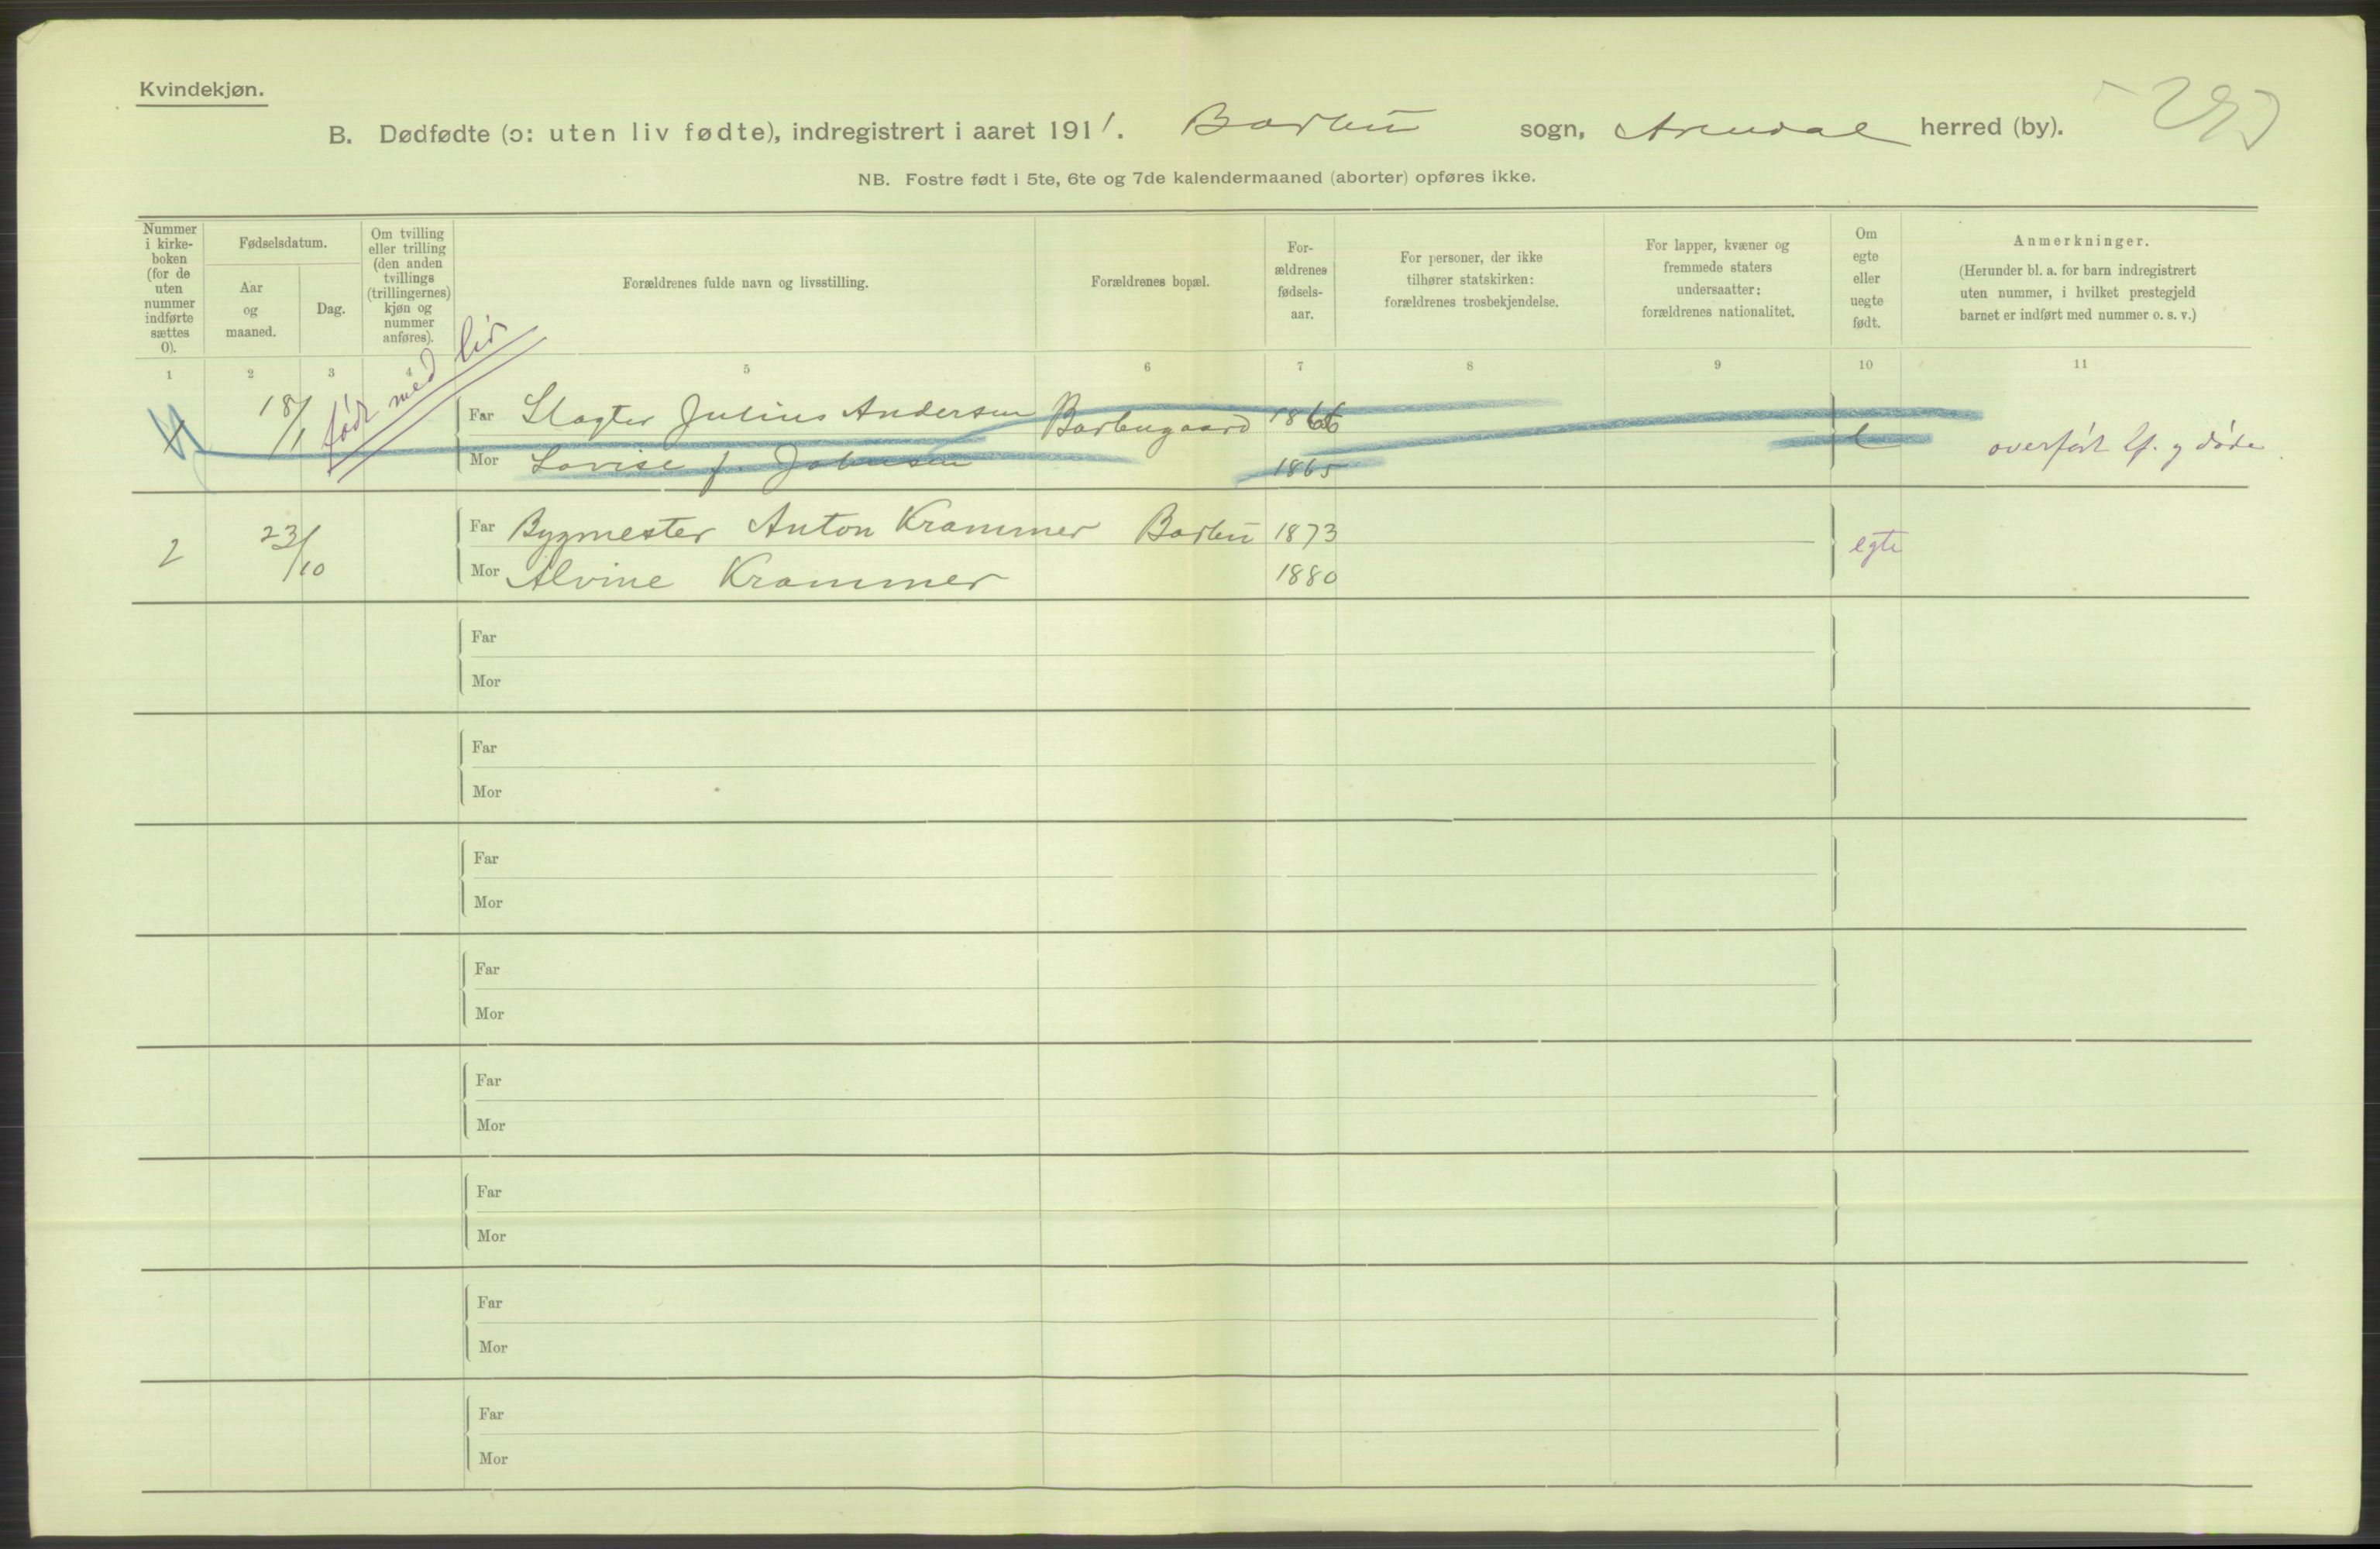 Kvindekjøn.
B. Dødfødte (ɔ: uten liv fødte), indregistrert i aaret 1911. Barbu sogn, Arendal herred (by).
NB. Fostre født i 5te, 6te og 7de kalendermaaned (aborter) opføres ikke.
Nummer i kirke-boken (for de uten nummer indførte sættes 0).
Fødselsdatum.
Aar og maaned.
Dag.
Om tvilling eller trilling (den anden tvillings (trillingernes) kjøn og nummer anføres).
Forældrenes fulde navn og livsstilling.
Forældrenes bopæl.
For-ældrenes fødsels-aar.
For personer, der ikke tilhører statskirken: forældrenes trosbekjendelse.
For lapper, kvæner og fremmede staters undersaatter: forældrenes nationalitet.
Om egte eller uegte født.
Anmerkninger.
(Herunder bl. a. for barn indregistrert uten nummer, i hvilket prestegjeld barnet er indført med nummer o. s. v.)
1 2 3 4 5 6 7 8 9 10 11
født med liv
18/1 Far Slagter Julius Andersen Barbugaard 1866
Mor Lovise f. Johnsen 1865
overført lf. og døde
2 23/10 Far Bygmester Anton Krammer Barbu 1873 egte
Mor Alvine Krammer 1880
Far
Mor
Far
Mor
Far
Mor
Far
Mor
Far
Mor
Far
Mor
Far
Mor
Far
Mor